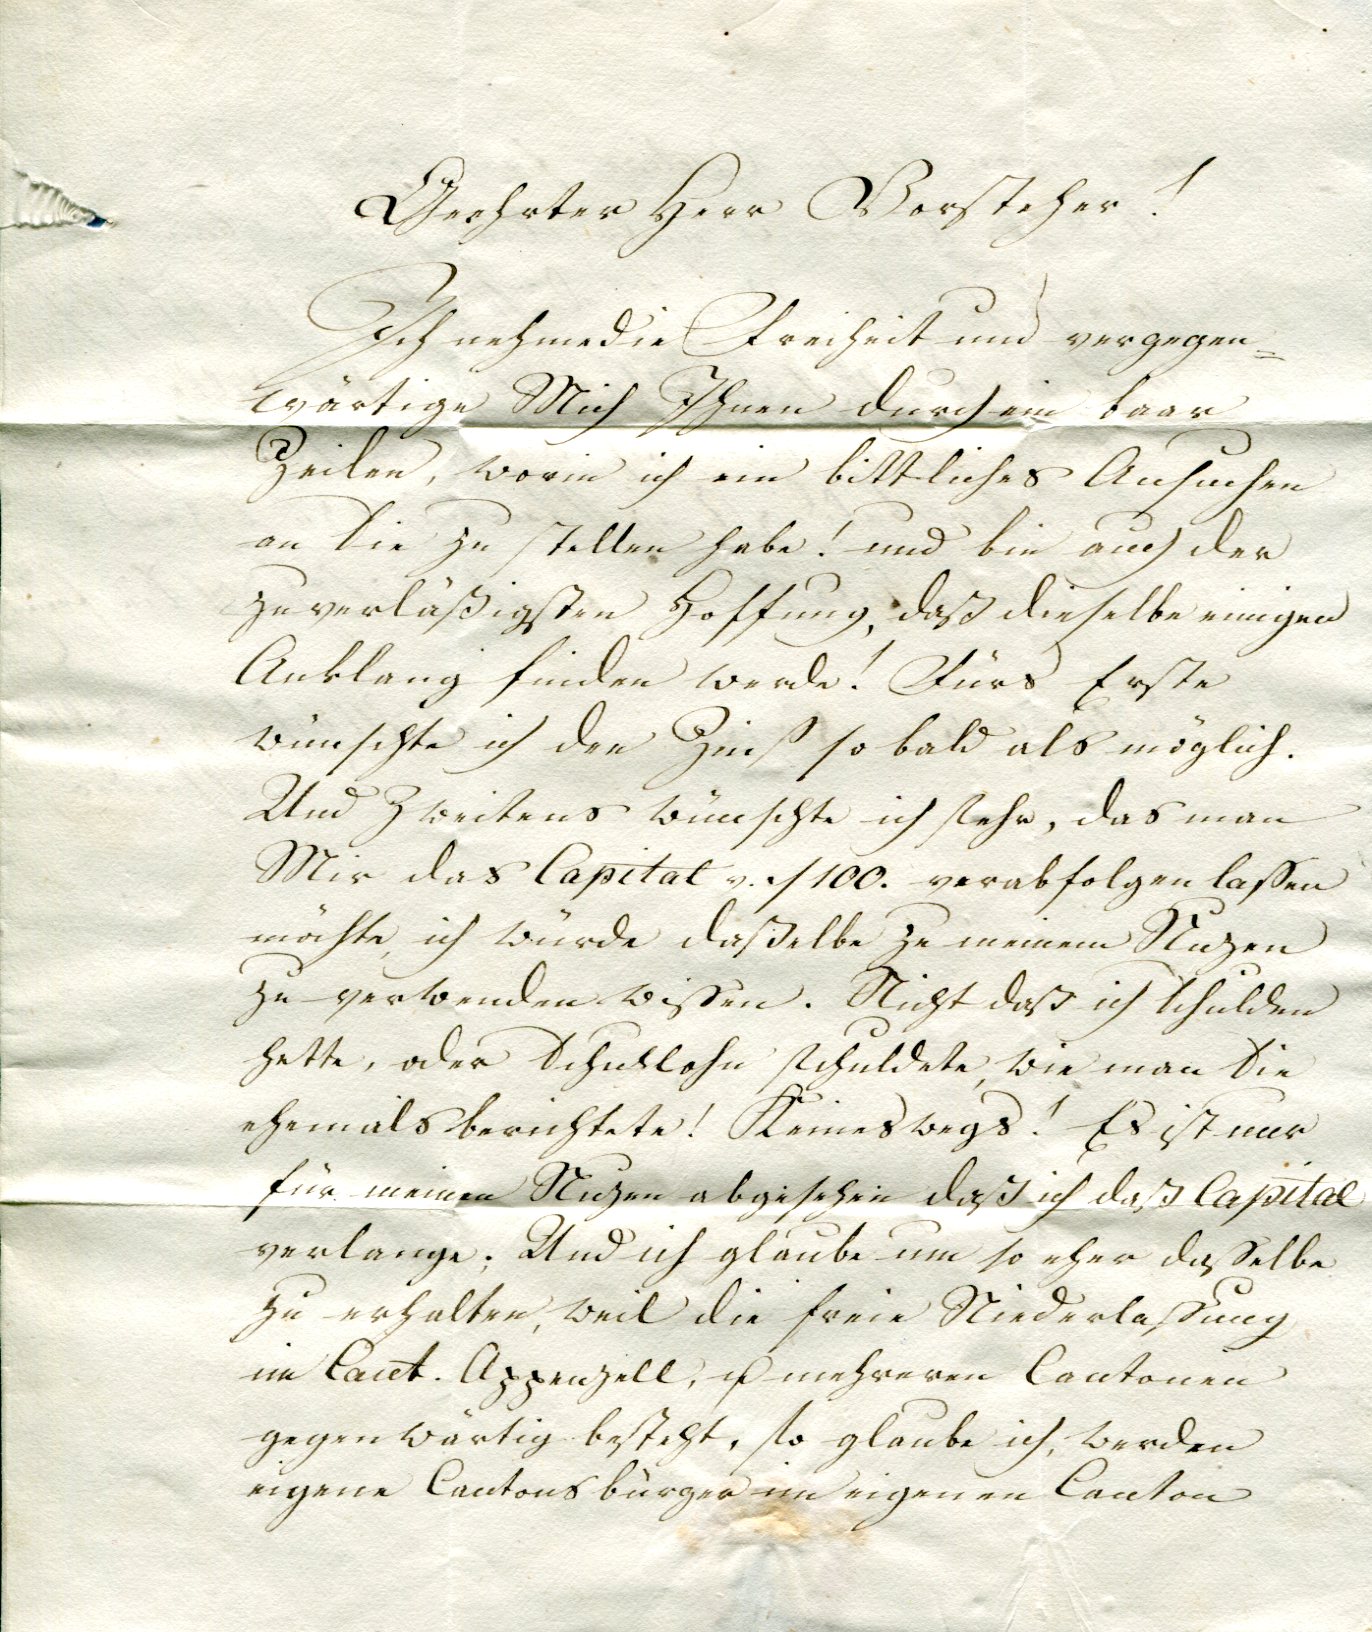 Geehrter Herr Vorsteher!
Ich nehme die Freiheit und vergegen=
wärtige Mich Ihnen durch ein baar
Zeilen, worin ich ein bittliches Ansuchen
an Sie zu stellen habe! und bin auch der
zuverläßigsten Hoffnung, daß dieselbe einigen
Anklang finden werde! Fürs Erste
wünschte ich den Zinß so bald als möglich.
Und Zweitens wünschte ich sehr, das man
Mir das Capital v. f 100. verabfolgen lassen
möchte, ich würde daßelbe zu meinem Nuzen
zu verwenden wissen. Nicht daß ich Schulden
hette, oder Schullohn schuldete, wie man Sie
ehemals berichtete! Keineswegs! Es ist nur
für meinen Nuzen abgesehen daß ich daß Capital
verlange. Und ich glaube um so eher dasselbe
zu erhalten, weil die freie Niederlassung
im Cant. Appenzell, & mehreren Cantonen
gegenwärtig besteht, so glaube ich, werden
eigene Cantonsbürger im eigenen Canton